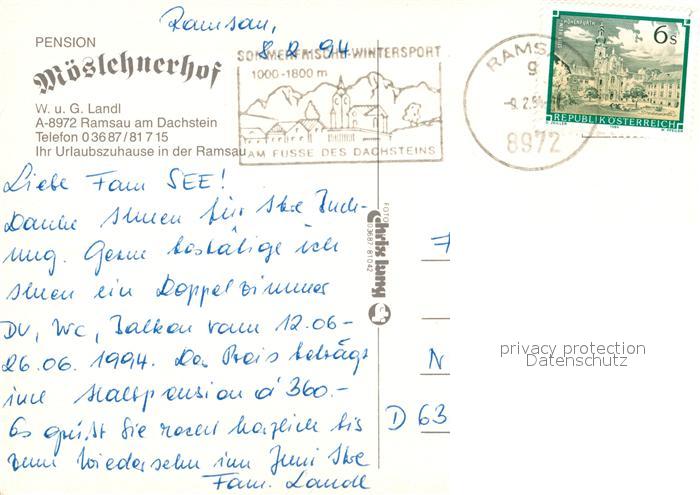 Ramsau,
8.2.94
PENSION
Möslehnerhof
W. u. G. Landl
A-8972 Ramsau am Dachstein
Telefon 0 36 87 / 81 7 15
Ihr Urlaubszuhause in der Ramsau
SOMMERFRISCHE-WINTERSPORT
1000-1800 m
AM FUSSE DES DACHSTEINS
RAMS
g
-9.2.94
8972
6 S
REPUBLIK ÖSTERREICH
Liebe Fam SEE!
Danke Ihnen für Ihre Buch-
ung. Gerne bestätige ich
Ihnen ein Doppelzimmer
DU, WC, Balkon vom 12.06-
26.06. 1994. Der Preis beträgt
inkl Halbpension á 360.-
Es grüßt Sie recht herzlich bis
zum Wiedersehn im Juni Ihre
Fam. Landl
FOTO
chris lang
03687/81042
N
D 63
privacy protection
Datenschutz